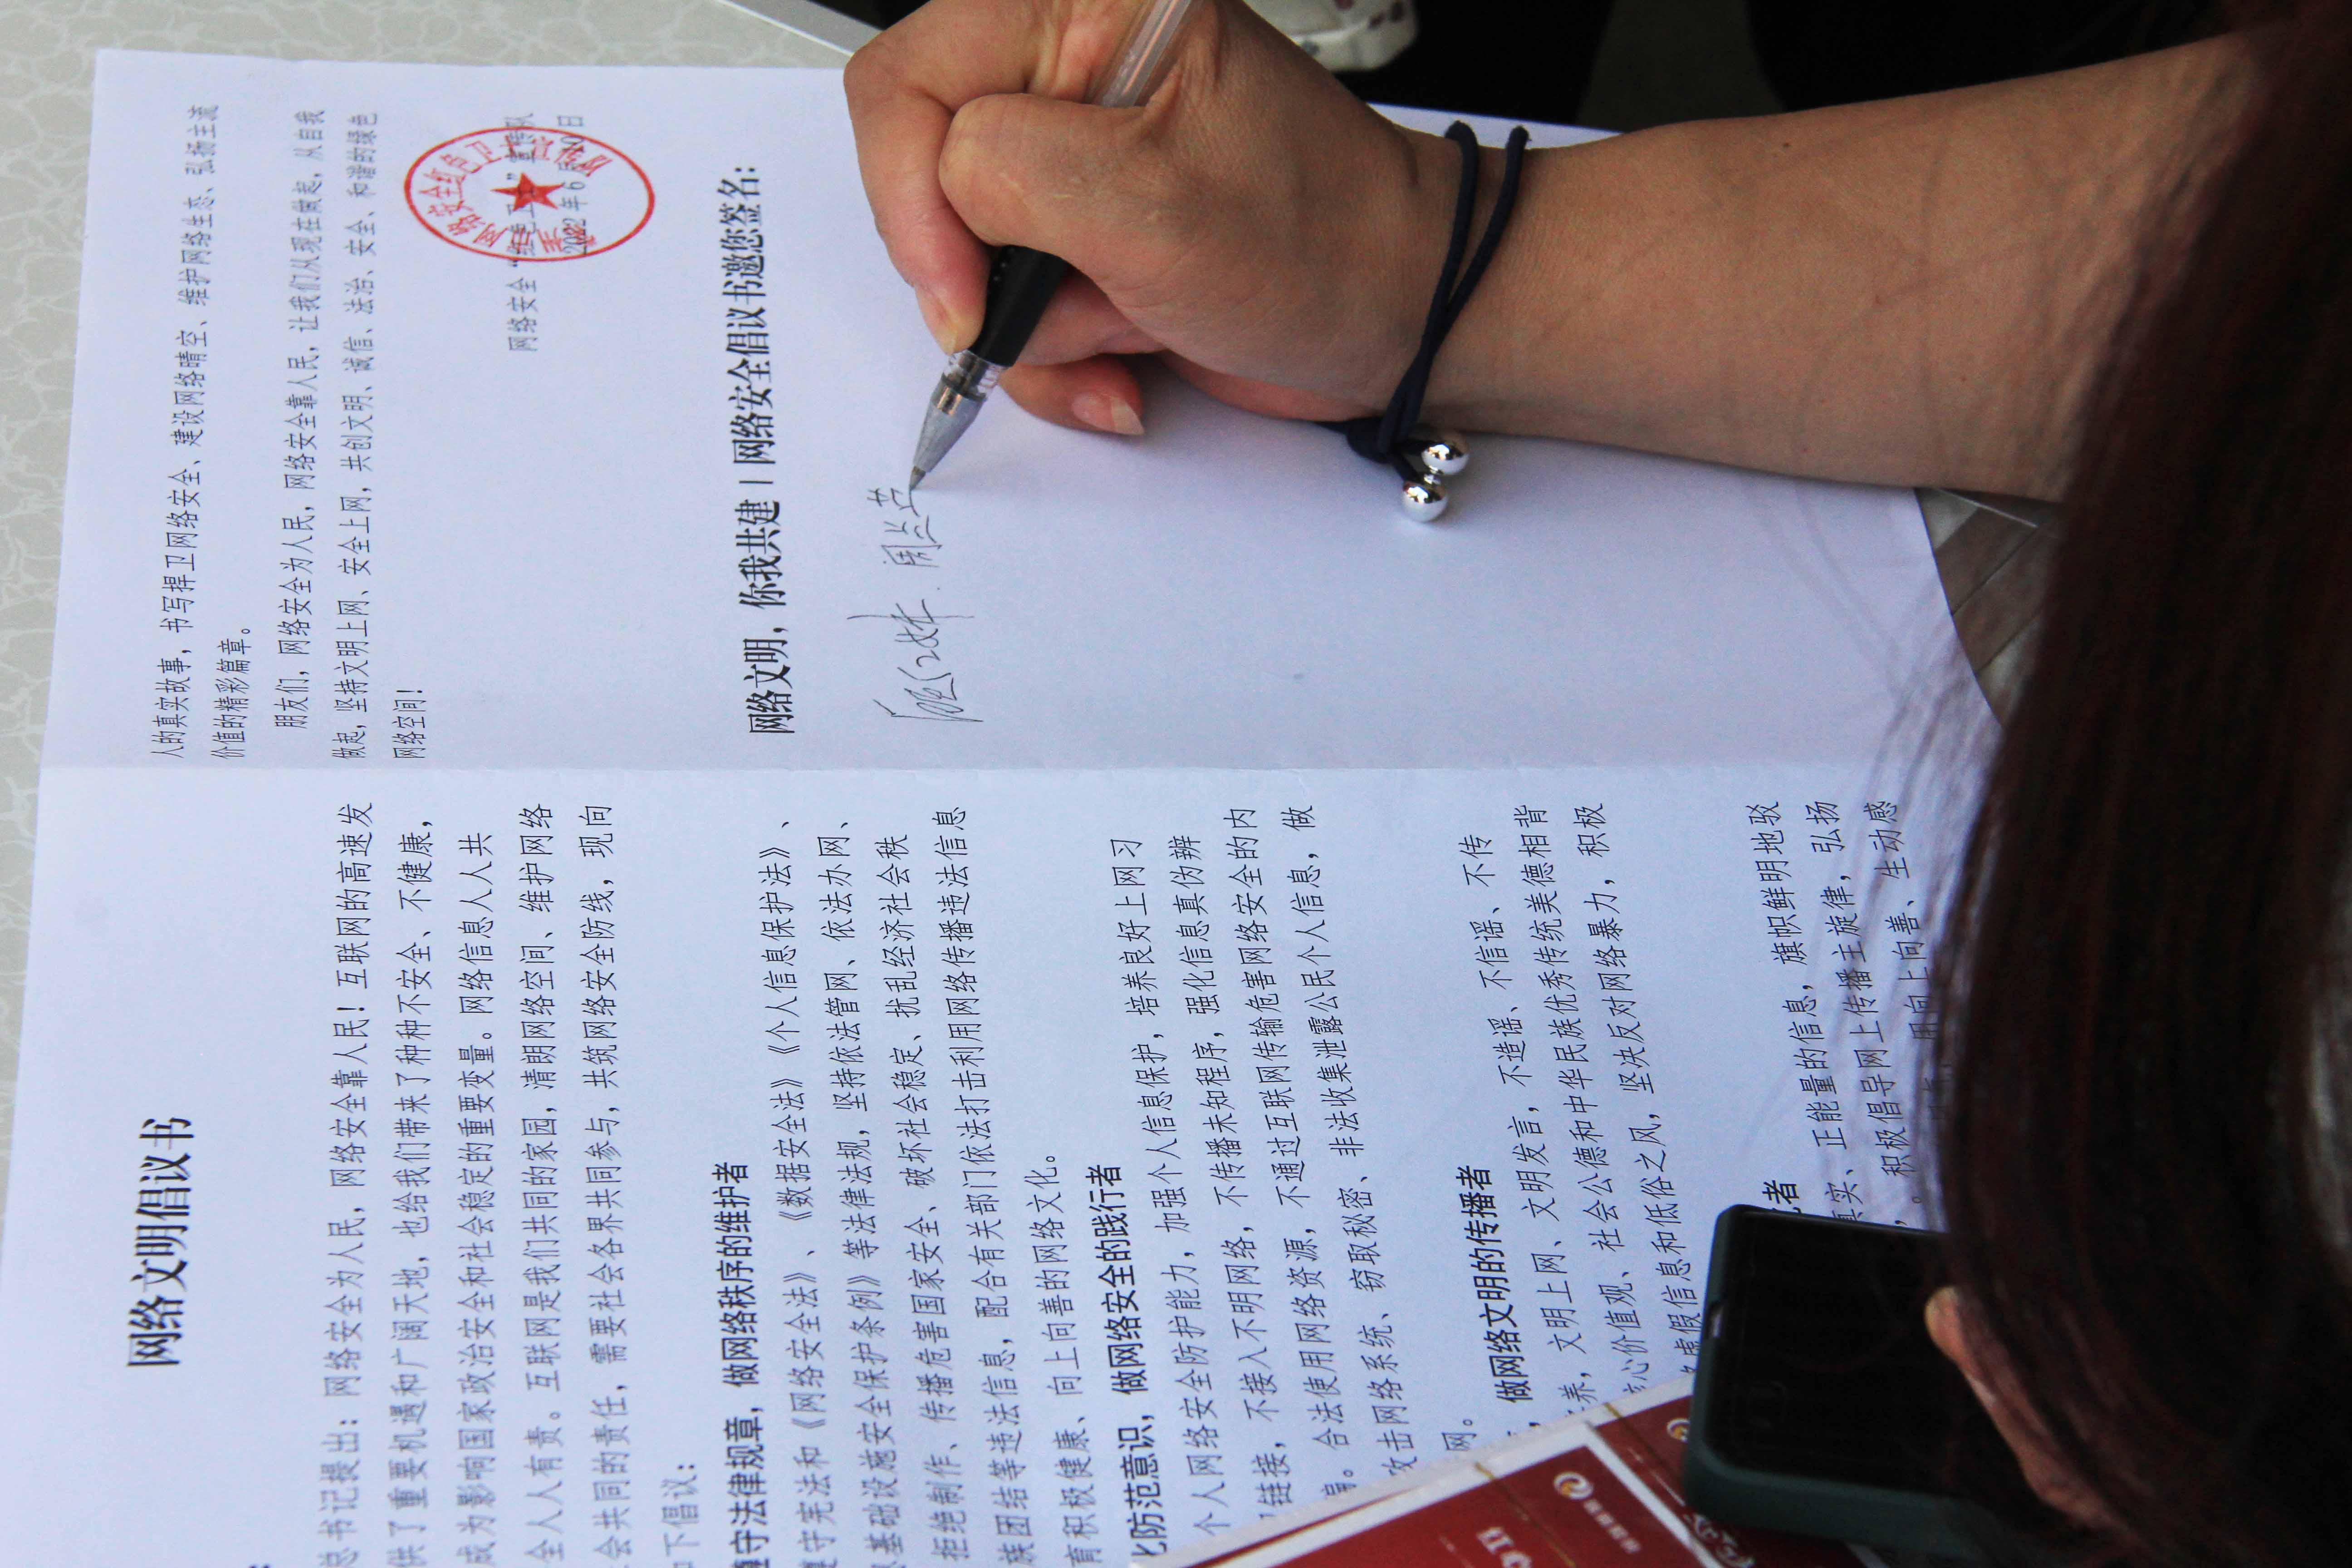 网络文明倡议书
总书记提出：网络安全为人民，网络安全靠人民！互联网的高速发
供了重要机遇和广阔天地，也给我们带来了种种不安全、不健康，
成为影响国家政治安全和社会稳定的重要变量。网络信息人人共
全人人有责。互联网是我们共同的家园，清朗网络空间、维护网络
会共同的责任，需要社会各界共同参与，共筑网络安全防线，现向
如下倡议：
遵守法律规章，做网络秩序的维护者
遵守宪法和《网络安全法》、《数据安全法》《个人信息保护法》、
基础设施安全保护条例》等法律法规，坚持依法管网、依法办网、
拒绝制作、传播危害国家安全、破坏社会稳定、扰乱经济社会秩
族团结等违法信息，配合有关部门依法打击利用网络传播违法信息
育积极健康、向上向善的网络文化。
化防范意识，做网络安全的践行者
个人网络安全防护能力，加强个人信息保护，培养良好上网习
链接，不接入不明网络，不传播未知程序，强化信息真伪辨
。合法使用网络资源，不通过互联网传输危害网络安全的内
攻击网络系统、窃取秘密、非法收集泄露公民个人信息，做
网。
，做网络文明的传播者
养，文明上网、文明发言，不造谣、不信谣、不传
心价值观、社会公德和中华民族优秀传统美德相背
虚假信息和低俗之风，坚决反对网络暴力，积极
者
真实、正能量的信息，旗帜鲜明地驳
积极倡导网上传播主旋律，弘扬
用向上向善、生动感
人的真实故事，书写捍卫网络安全、建设网络晴空、维护网络生态、弘扬主流
价值的精彩篇章。
朋友们，网络安全为人民，网络安全靠人民，让我们从现在做起，从自我
做起，坚持文明上网、安全上网，共创文明、诚信、法治、安全、和谐的绿色
网络空间！
网络安全“红色卫士”宣传队
2022年6月
日
网络文明，你我共建丨网络安全倡议书邀您签名：
周兰